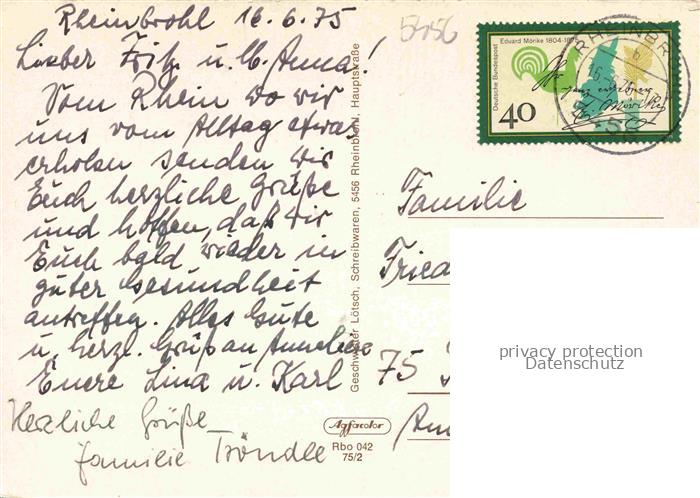 Rheinbrohl 16.6.75
Lieber Fritz u. lb. Anna!
Vom Rhein wo wir
uns vom Alltag etwas
erholen senden wir
Euch herzliche Grüße
und hoffen, daß wir
Euch bald wieder in
guter Gesundheit
antreffen. Alles Gute
u. herzl. Gruß an Anneliese
Euere Lina u. Karl
Herzliche Grüße
Familie Tröndle
Geschwister Lötsch, Schreibwaren, 5456 Rheinbrohl, Hauptstraße
Agfacolor
Rbo 042
75/2
5456
Deutsche Bundespost
Eduard Mörike 1804-1875
40
RHEINBR
Familie
Fried
75
privacy protection
Datenschutz